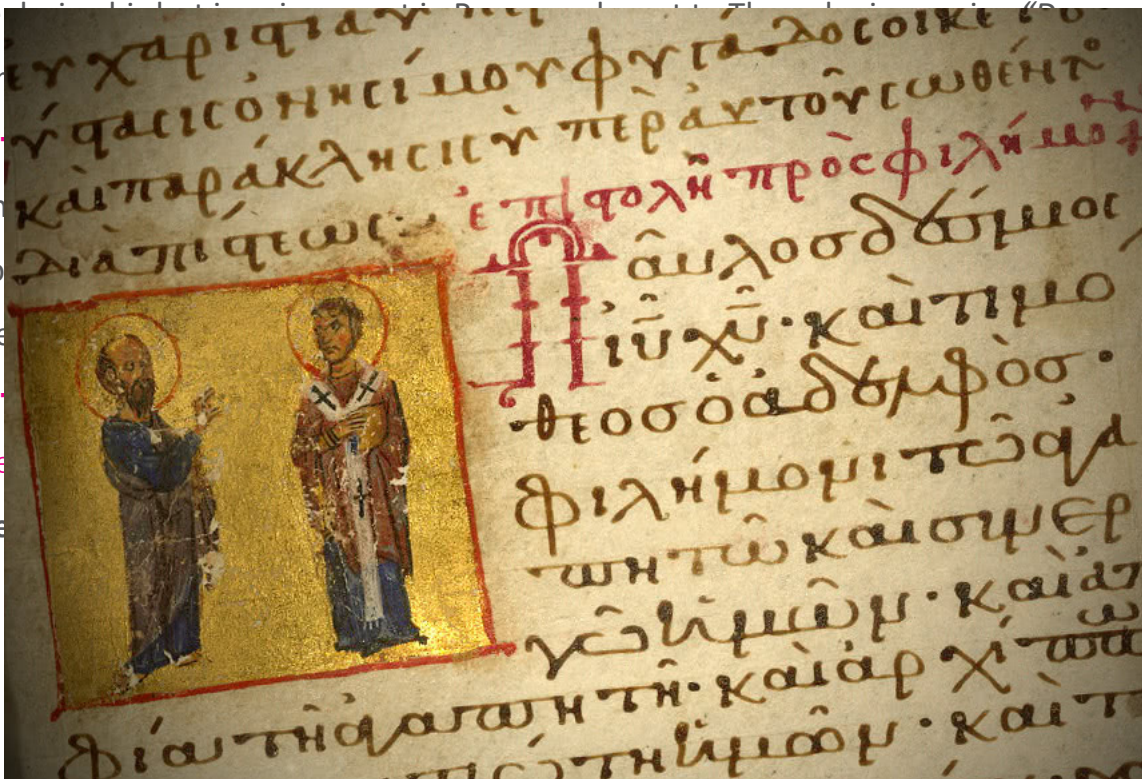 ευχαριστίαν
ύστασις ὀνησίμου φυγάδος οἰκε
καὶ παράκλησις ὑπὲρ αὐτοῦ σωθέντ
διὰ πίστεως:
ἐπιστολὴ πρὸς φιλήμο
Παῦλος δέσμιος
ιῦ χῦ· καὶ τιμο
θεος ὁ ἀδελφὸς·
φιλήμονι τῶ ἀγα
πητῶ καὶ συνερ
γῶ ἡμῶν· καὶ ἀπ
φία τῆ ἀγαπητῆ· καὶ ἀρχίππω
ώτη ἡμῶν· καὶ τ